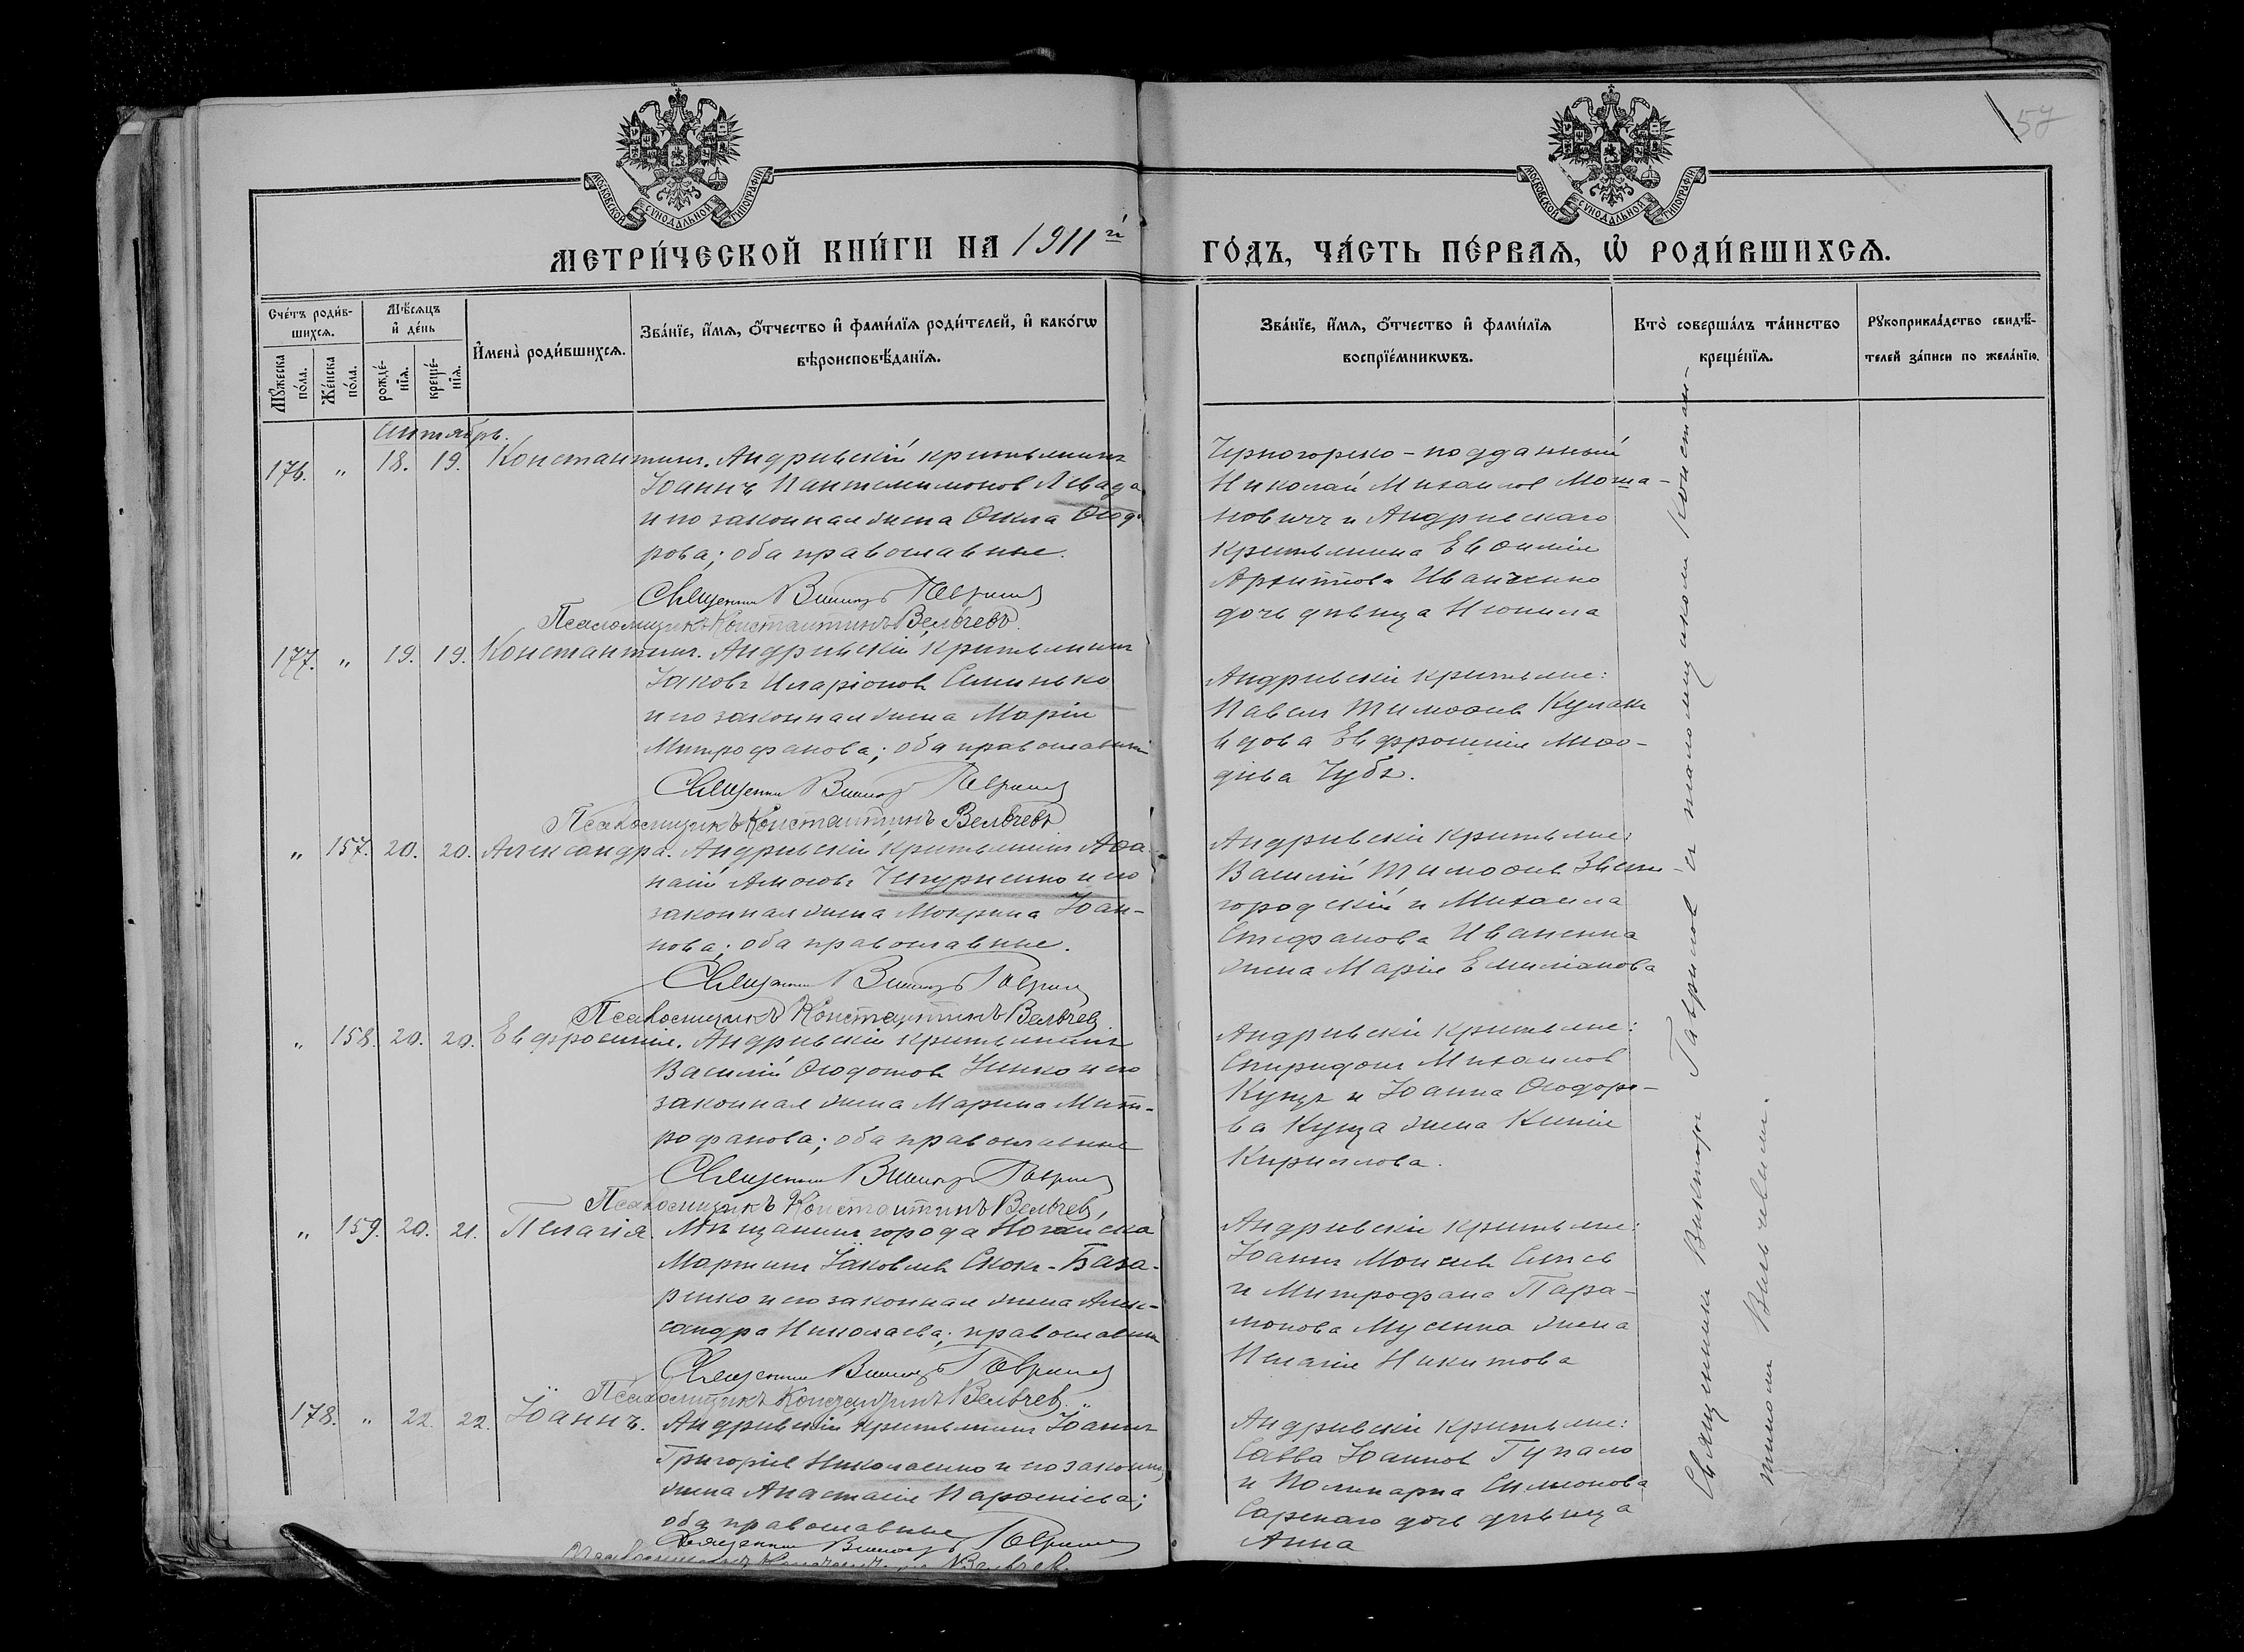 57
МОСКОВСКОЙ СѴНОДАЛЬНОЙ ТИПОГРАФІИ
МОСКОВСКОЙ СѴНОДАЛЬНОЙ ТИПОГРАФІИ
МЕТРИ́ЧЕСКОЙ КНИ́ГИ НА 1911й ГО́ДЪ, ЧА́СТЬ ПЕ́РВАѦ, Ѽ РОДИ́ВШИХСѦ.
Сче́тъ роди́в-
шихсѧ.
Мꙋ́жеска по́ла.
Же́нска по́ла.
Мѣ́сѧцъ
и҆ де́нь
рожде́-
нїѧ.
креще́-
нїѧ.
И҆мена̀ роди́вшихсѧ.
Зва́нїе, и҆́мѧ, ѻ҆́тчество и҆ фами́лїѧ роди́телей, и҆ како́гѡ
вѣроисповѣ́данїѧ.
Зва́нїе, и҆́мѧ, ѻ҆́тчество и҆ фами́лїѧ
воспрїе́мникѡвъ.
Кто̀ соверша́лъ та́инство
креще́нїѧ.
Рꙋкоприкла́дство свидѣ́-
телей за́писи по жела́нїю.
Сентябрь.
176. " 18. 19. Константинъ. Андреевскій крестьянинъ
Іоаннъ Пантелеимоновъ Левада
и его законная жена Ѳекла Ѳеодо-
рова; оба православные.
Священникъ Викторъ Гавриловъ
Псаломщикъ Константинъ Вельчевъ.
Черногорско-подданный
Николай Михаиловъ Моша-
новичъ и Андреевскаго
крестьянина Евѳимія
Архипова Иванченко
дочь дѣвица Неонила
177. " 19. 19. Константинъ. Андреевскій крестьянинъ
Іаковъ Иларіоновъ
и его законная жена Марія
Митрофанова; оба православные
Священникъ Викторъ Гавриловъ
Псаломщикъ Константинъ Вельчевъ
Андреевскіе крестьяне:
Павелъ Тимоѳеевъ Кулакъ
вдова Евфросинія Меѳо-
діева Чубъ.
" 157. 20. 20. Александра. Андреевскій крестьянинъ Аѳа-
насій Амосовъ и его
законная жена Мокрина Іоан-
нова; оба православные.
Священникъ Викторъ Гавриловъ
Псаломщикъ Константинъ Вельчевъ.
Андреевскіе крестьяне:
Василій Тимоѳеевъ Звени-
городскій и Михаила
Стефанова Иваненка
жена Марія Емиліанова
" 158. 20. 20. Евфросинія. Андреевскій крестьянинъ
Василій Ѳеодотовъ и его
законная жена Марина Мит-
рофанова; оба православные
Священникъ Викторъ Гавриловъ
Псаломщикъ Константинъ Вельчевъ,
Андреевскіе крестьяне:
Спиридонъ Михаиловъ
Куцъ и Іоанна Ѳеодоро-
ва Куца жена Ксенія
Кириллова.
" 159. 20. 21. Пелагія. Мѣщанинъ города Ногайска
Мартинъ Іаковлевъ Скокъ-База-
ренко и его законная жена Алек-
сандра Николаева; православные
Священникъ Викторъ Гавриловъ
Псаломщикъ Константинъ Вельчевъ.
Андреевскіе крестьяне:
Іоаннъ Моисеевъ
и Митрофана Пара-
монова Мусенка жена
Пелагія Никитова
178. " 22. 22. Іоаннъ. Андреевскій крестьянинъ Іоаннъ
Григоріевъ Николаенко и его законная
жена Анастасія Парѳеніева;
оба православные
Священникъ Викторъ Гавриловъ
Псаломщикъ Константинъ Вельчевъ.
Андреевскіе крестьяне:
Савва Іоанновъ Гупало
и Поликарпа Симонова
дочь дѣвица
Анна
Священникъ Викторъ Гавриловъ съ псаломщикомъ Констан-
тиномъ Вельчевымъ.